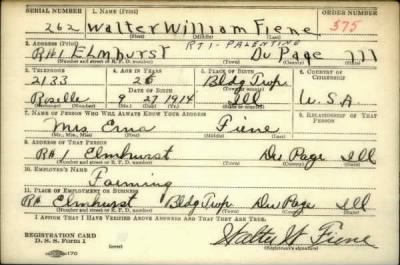 SERIAL NUMBER 1. NAME (Print) ORDER NUMBER
262 Walter William Fiene 375
(First) (Middle) (Last)
2. ADDRESS (Print) RT 1 - PALENTINE
RH1 Elmhurst Du Page Ill
(Number and street or R. F. D. number) (Town) (County) (State)
3. TELEPHONE 4. AGE IN YEARS 5. PLACE OF BIRTH 6. COUNTRY OF CITIZENSHIP
2133 26 Bldg Twp
DATE OF BIRTH (Town or county)
Roselle 9 27 1914 Ill U.S.A.
(Exchange) (Mo.) (Day) (Yr.) (State or country)
7. NAME OF PERSON WHO WILL ALWAYS KNOW YOUR ADDRESS 8. RELATIONSHIP OF THAT PERSON
Mrs Erna Fiene
(Mr., Mrs., Miss) (First) (Middle) (Last)
9. ADDRESS OF THAT PERSON
RH1 Elmhurst Du Page Ill
(Number and street or R. F. D. number) (Town) (County) (State)
10. EMPLOYER'S NAME
Farming
11. PLACE OF EMPLOYMENT OR BUSINESS
RH1 Elmhurst Bldg Twp Du Page Ill
(Number and street or R. F. D. number) (Town) (County) (State)
I AFFIRM THAT I HAVE VERIFIED ABOVE ANSWERS AND THAT THEY ARE TRUE.
REGISTRATION CARD
D. S. S. Form 1 Walter W Fiene
(Registrant's signature)